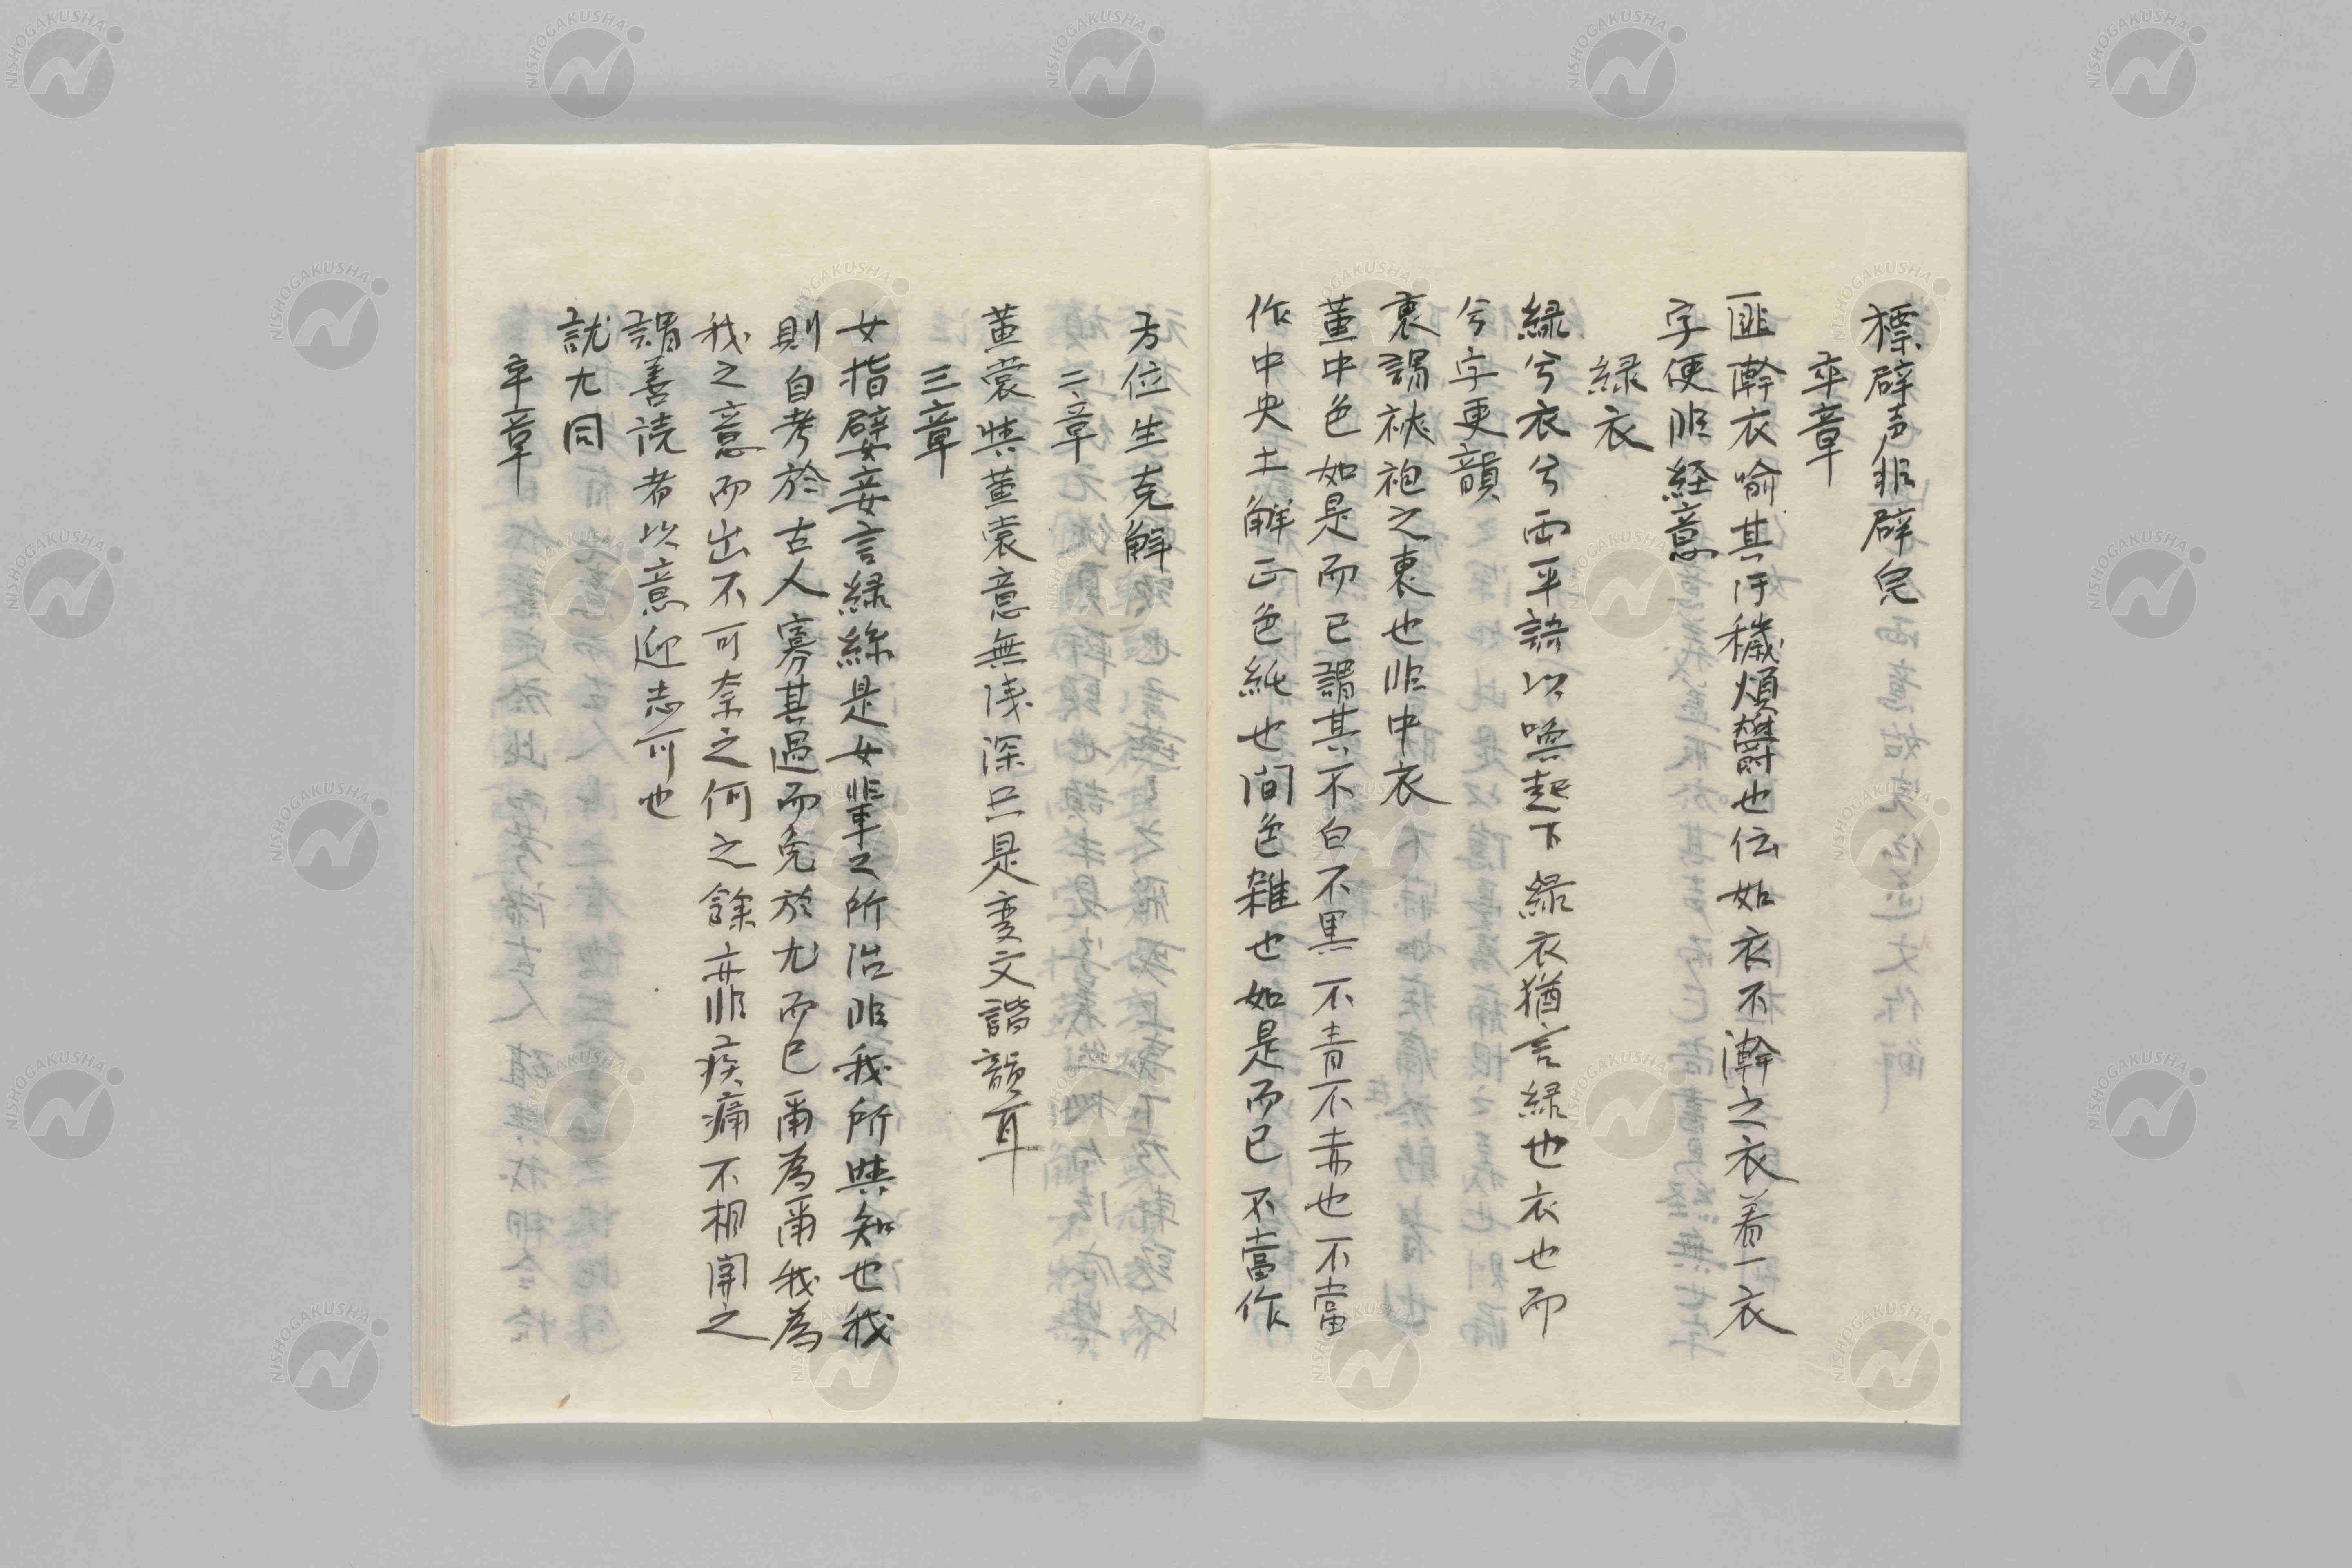 標辟声非辟宛
卒章
匪澣衣喩其汙穢煩鬱也伝如衣不澣之衣着一衣
字便非経意
緑衣
緑兮衣兮両平語以喚起下緑衣猶言緑也衣也而
兮字更韻
裏謁袱袍之裏也非中衣
黄中色如是而已謂其不白不黒不青不赤也不當
作中央土解正色純也間色雑也如是而已不當作
方位生克解
二章
黄裳與黄裏意無浅深只是変文諧韻耳
三章
女指嬖妾言緑絲是女輩之所治非我所與知也我
則自考於古人寡其過而免於尤而已爾為爾我為
我之意而出不可奈之何之餘亦非疾痛不相関之
謂善読者以意迎志可也
訧尤同
卒章
NISHOGAKUSHA